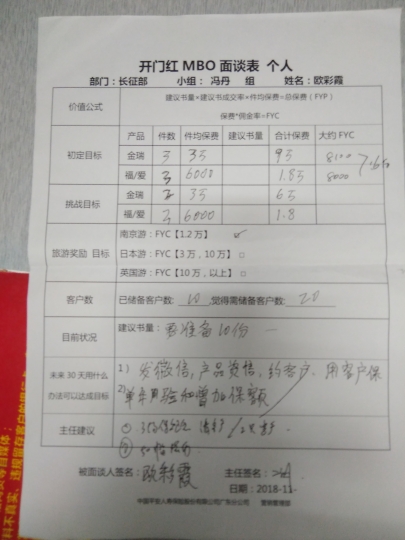 开门红 MBO 面谈表 个人
部门：长征部 小组：冯丹 组 姓名：欧彩霞
价值公式 建议书量×建议书成交率×件均保费=总保费（FYP）
保费*佣金率=FYC
产品 件数 件均保费 建议书量 合计保费 大约 FYC
初定目标 金瑞 3 3万 9万 8100
福/爱 3 6000 1.8万 8000
挑战目标 金瑞 3万 6万
福/爱 3 6000 1.8
旅游奖励 目标 南京游：FYC【1.2 万】 ✓
日本游：FYC【3 万，10 万】□
英国游：FYC【10 万，以上】□
客户数 已储备客户数： 10 ,觉得需储备客户数： 20
目前状况 建议书量： 要准备10份
未来 30 天用什么办法可以达成目标 1）发微信,产品资信,约客户、用客户保
2）单年月检和增加保额
主任建议 ①
②
被面谈人签名：欧彩霞 主任签名：
日期：2018-11-
中国平安人寿保险股份有限公司广东分公司 营销管理部